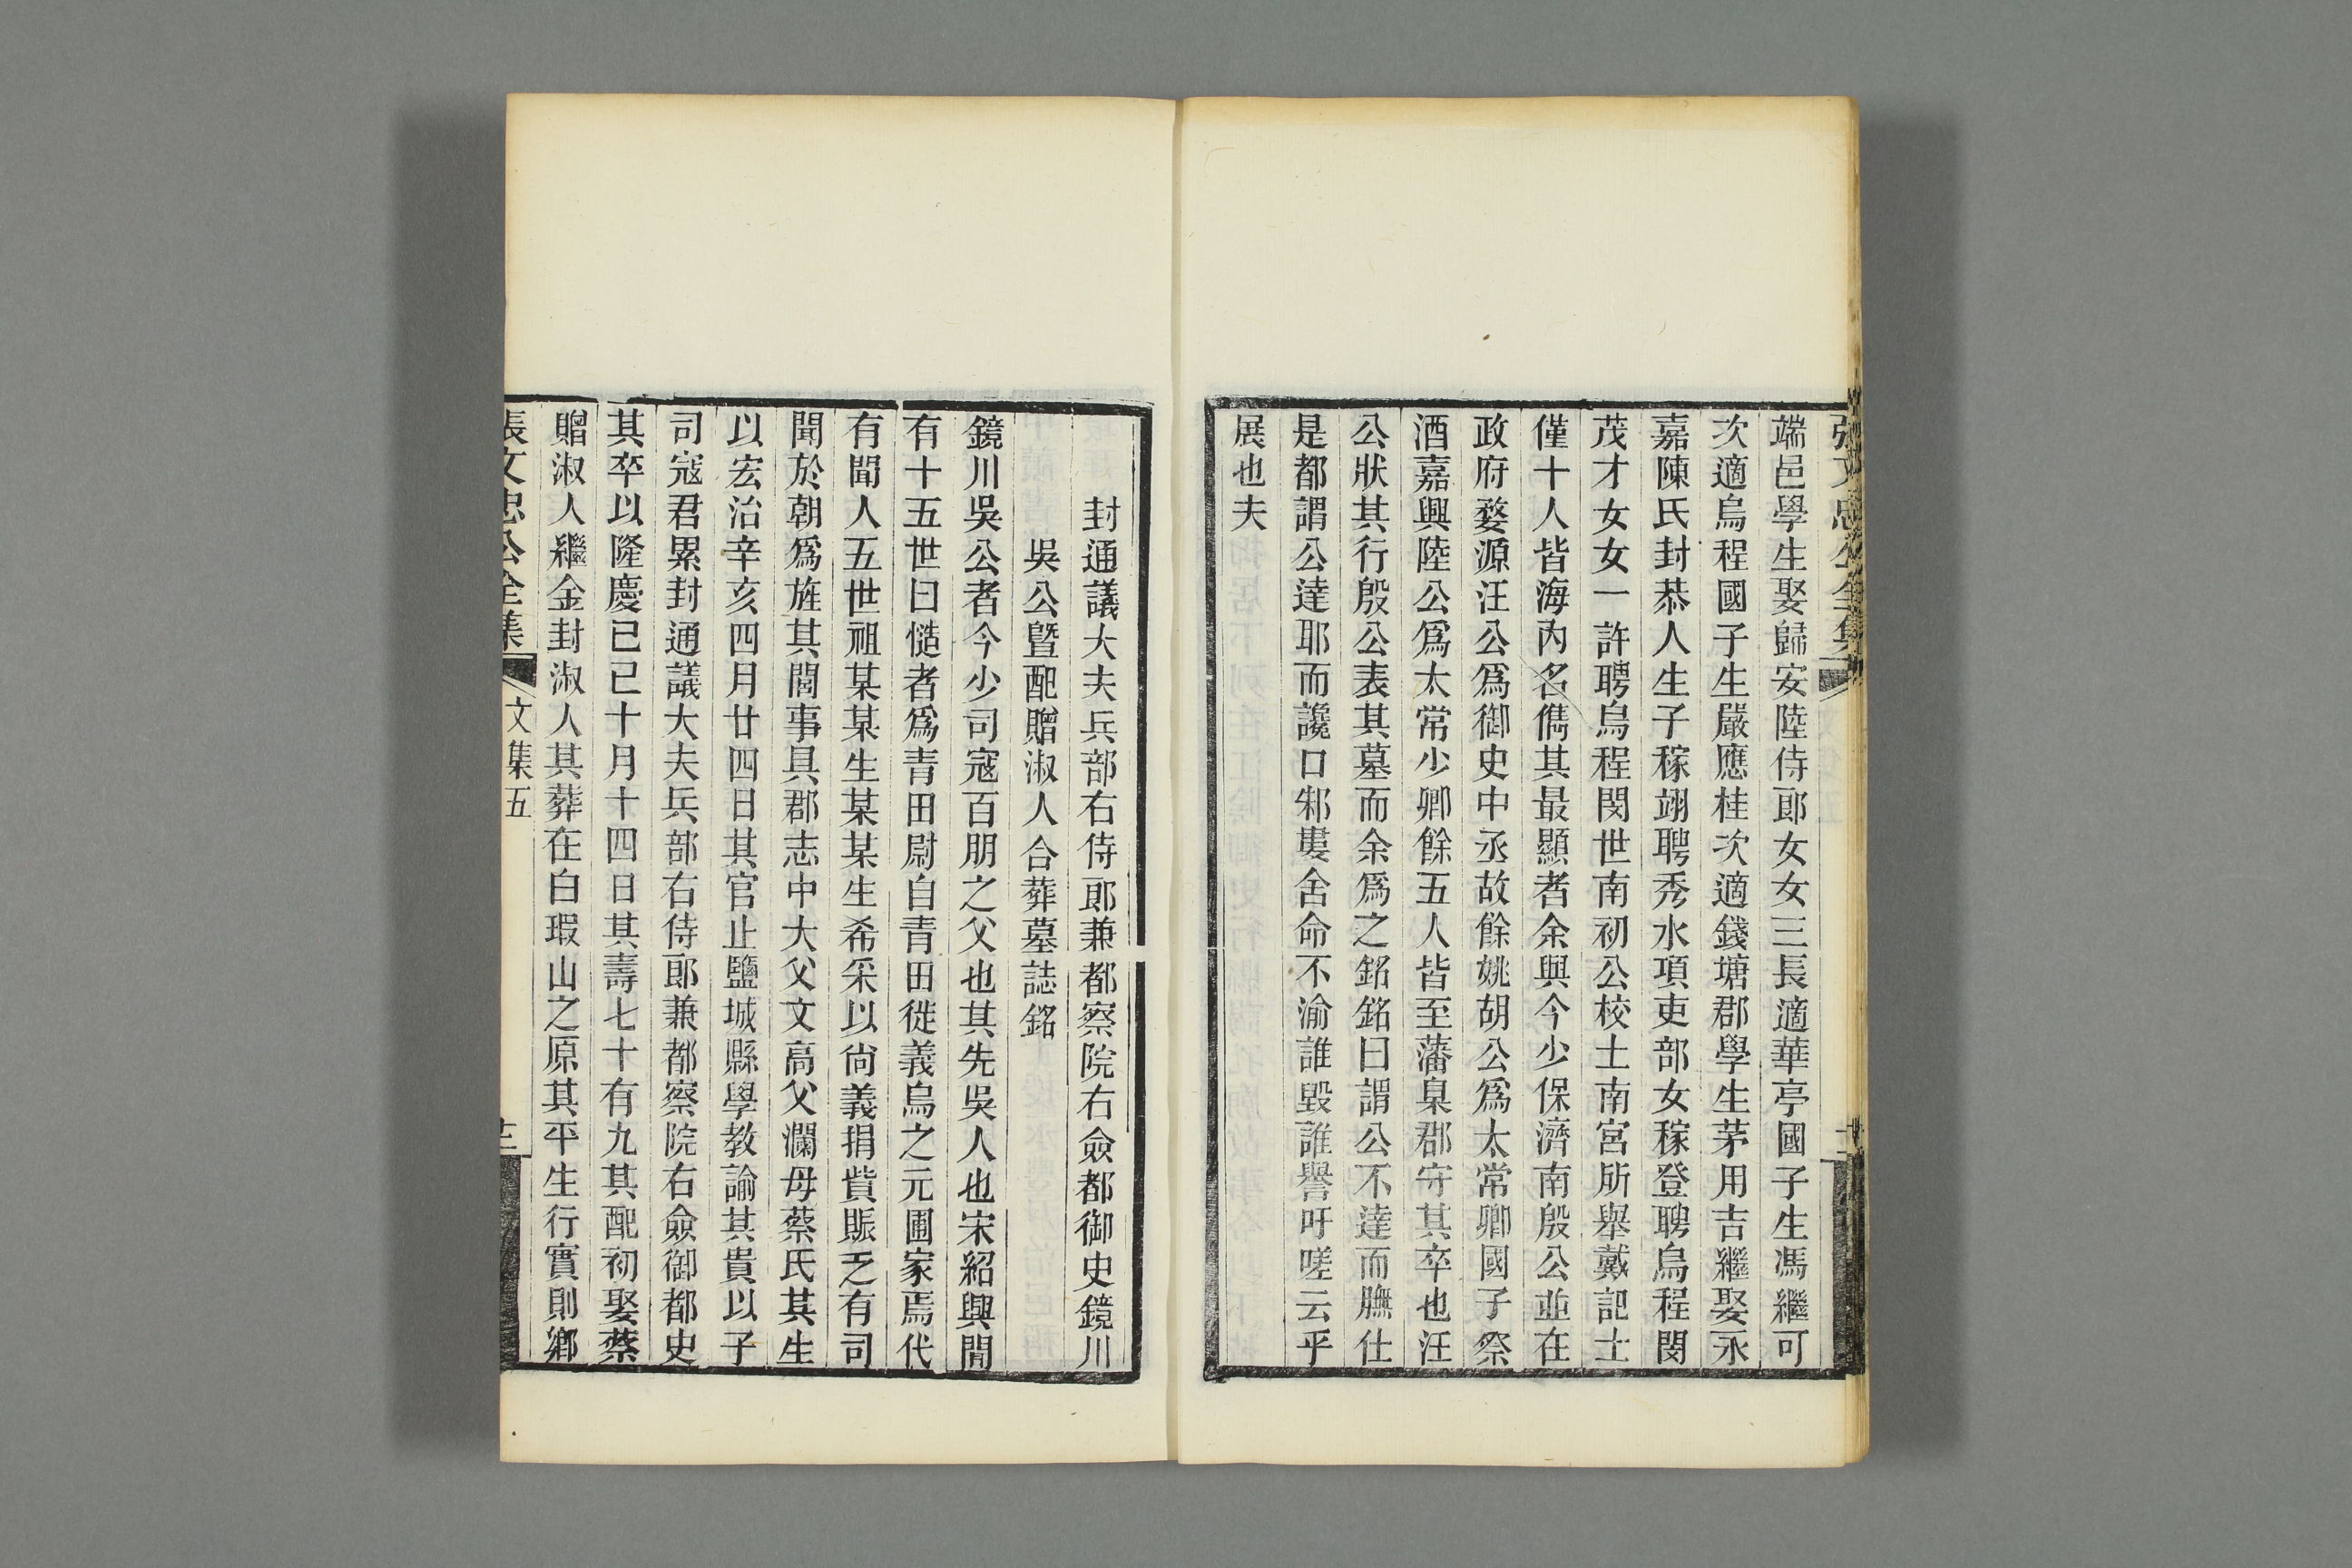 端邑學生娶歸安陸侍郎女女三長適華亭國子生馮繼可
次適烏程國子生嚴應桂次適錢塘郡學生茅用吉繼娶永
嘉陳氏封恭人生子稼翊聘秀水項吏部女稼登聘烏程閔
茂才女女一許聘烏程閔世南初公校士南宮所舉戴記士
僅十人皆海內名儁其最顯者余與今少保濟南殷公並在
政府婺源汪公爲御史中丞故餘姚胡公爲太常卿國子祭
酒嘉興陸公爲太常少卿餘五人皆至藩臬郡守其卒也汪
公狀其行殷公表其墓而余爲之銘銘曰謂公不達而膴仕
是都謂公達耶而讒口邾婁舍命不渝誰毀誰譽吁嗟云乎
展也夫
封通議大夫兵部右侍郎兼都察院右僉都御史鏡川
吳公曁配贈淑人合葬墓誌銘
鏡川吳公者今少司寇百朋之父也其先吳人也宋紹興間
有十五世曰慥者爲青田尉自青田徙義烏之元圃家焉代
有聞人五世祖某某生某某生希采以尚義捐貲賑乏有司
聞於朝爲旌其閭事具郡志中大父文高父瀾母蔡氏其生
以宏治辛亥四月廿四日其官止鹽城縣學教諭其貴以子
司寇君累封通議大夫兵部右侍郎兼都察院右僉御都史
其卒以隆慶已已十月十四日其壽七十有九其配初娶蔡
贈淑人繼金封淑人其葬在白瑕山之原其平生行實則鄉
張文忠公全集 文集五